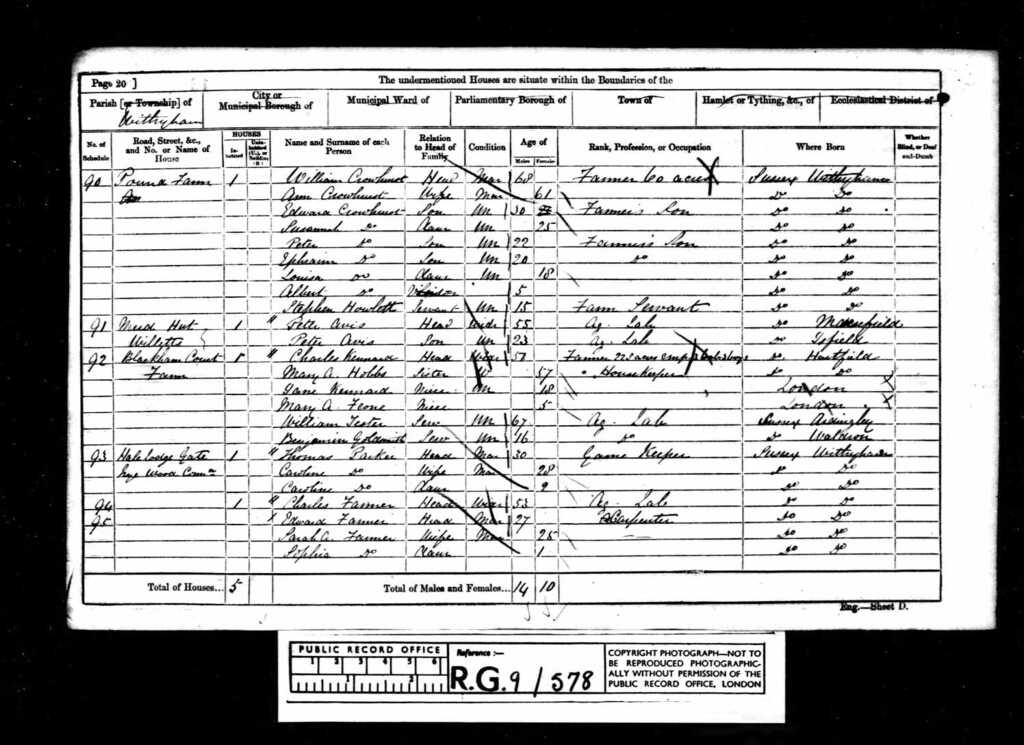 Page 20 ]
The undermentioned Houses are situate within the Boundaries of the
Parish [or Township] of
City or Municipal Borough of
Municipal Ward of
Parliamentary Borough of
Town of
Hamlet or Tything, &c., of
Ecclesiastical District of
Withyham
No. of Schedule
Road, Street, &c., and No. or Name of House
HOUSES
Name and Surname of each Person
Relation to Head of Family
Condition
Age of
Males
Females
Rank, Profession, or Occupation
Where Born
Whether Blind, or Deaf-and-Dumb
90 Pound Farm 1 William Crowhurst Head Mar 68 Farmer 60 acres Sussex Withyham
Ann Crowhurst Wife Mar 61 Do Do
Edward Crowhurst Son Un 30 Farmer's Son Do Do
Susannah Do Daur Un 25 Do Do
Peter Do Son Un 22 Farmer's Son Do Do
Ephraim Do Son Un 20 Do Do Do
Louisa Do Daur Un 18 Do Do
Albert Do 5 Do Do
Stephen Howlett Servant Un 15 Farm Servant Do Do
91 Hut 1 Peter Avis Head 55 Ag. Lab Do Maresfield
Willetts Peter Avis Son Un 23 Ag. Lab Do Isfield
92 Blackham Court Charles Kennard Head 57 Farmer Do Hartfield
Farm Mary A. Hobbs Sister W 57 Housekeeper Do Do
Jane Kennard Niece Un 18 London
Mary A. Niece 5 London
William Tester Serv Un 67 Ag. Lab Sussex Ardingley
Benjamin Goldsmith Serv Un 16 Do Do Waldron
93 Hale Lodge Gate 1 Thomas Parker Head Mar 30 Game Keeper Sussex Withyham
Caroline Do Wife Mar 28 Do Do
Caroline Do Daur 2 Do Do
94 1 Charles Farmer Head 53 Ag. Lab Do Do
95 Edward Farmer Head Mar 27 Carpenter Do Do
Sarah A. Farmer Wife Mar 25 Do Do
Sophia Do Daur 1 Do Do
Total of Houses... 5
Total of Males and Females... 14 10
Eng.—Sheet D.
PUBLIC RECORD OFFICE
1 2 3 4 5 6
1 2
Reference :—
R.G. 9 / 578
COPYRIGHT PHOTOGRAPH—NOT TO
BE REPRODUCED PHOTOGRAPHIC-
ALLY WITHOUT PERMISSION OF THE
PUBLIC RECORD OFFICE, LONDON